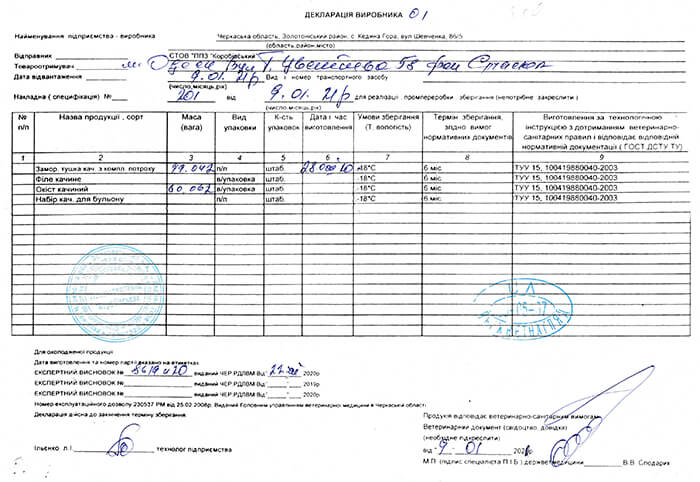 ДЕКЛАРАЦІЯ ВИРОБНИКА 01
Найменування підприємства - виробника Черкаська область, Золотоніський район, с. Кедина Гора, вул Шевченка, 86/5
(область,район,місто)
Відправник СТОВ "ППЗ "Коробівський"
Товароотримувач
Дата відвантаження 9.01.21р Вид і номер транспортного засобу
(число,місяць,рік)
Накладна ( специфікація ) № 201 від 9.01.21р для реалізації, промпереробки, зберігання (непотрібне закреслити )
(число,місяць,рік)
№ п/п Назва продукції , сорт Маса (вага) Вид упаковки К-сть упаковок Дата і час виготовлення Умови зберігання (Т. вологість) Термін зберігання, згідно вимог нормативних документів Виготовлення за технологічною інструкцією з дотриманням ветеринарно-санітарних правил і відповідає відповідній нормативній документації ( ГОСТ,ДСТУ ТУ)
1 2 3 4 5 6 7 8 9
Замор. тушка кач. з компл. потроху 99.042 п/п штаб. -18°С 6 міс. ТУУ 15, 100419880040-2003
Філе качине в/упаковка штаб. -18°С 6 міс. ТУУ 15, 100419880040-2003
Окіст качиний 60.062 в/упаковка штаб. -18°С 6 міс. ТУУ 15, 100419880040-2003
Набір кач. для бульону п/п штаб. -18°С 6 міс. ТУУ 15, 100419880040-2003
Для охолодженої продукції
Дата виготовлення та номер партії вказано на етикетках
ЕКСПЕРТНИЙ ВИСНОВОК № виданий ЧЕР.РДЛВМ Від 2020р
ЕКСПЕРТНИЙ ВИСНОВОК № виданий ЧЕР.РДЛВМ Від 2019р
ЕКСПЕРТНИЙ ВИСНОВОК № виданий ЧЕР.РДЛВМ Від 2020р
Номер експлуатаційного дозволу 230537 РМ від 25.02.2006р. Виданий Головним управлінням ветеринарної медицини в Черкаській області
Декларація дійсна до закінчення терміну зберігання.
Продукція відповідає ветеринарно-санітарним вимогам.
Ветеринарни документ (свідоцтво, довідки)
(необхідне підкреслити)
Ільєнко Л.І. технолог підприємства
від 9 01 2021р
М.П. (підпис спеціаліста П І Б ) держветмедицини В.В. Слодарик